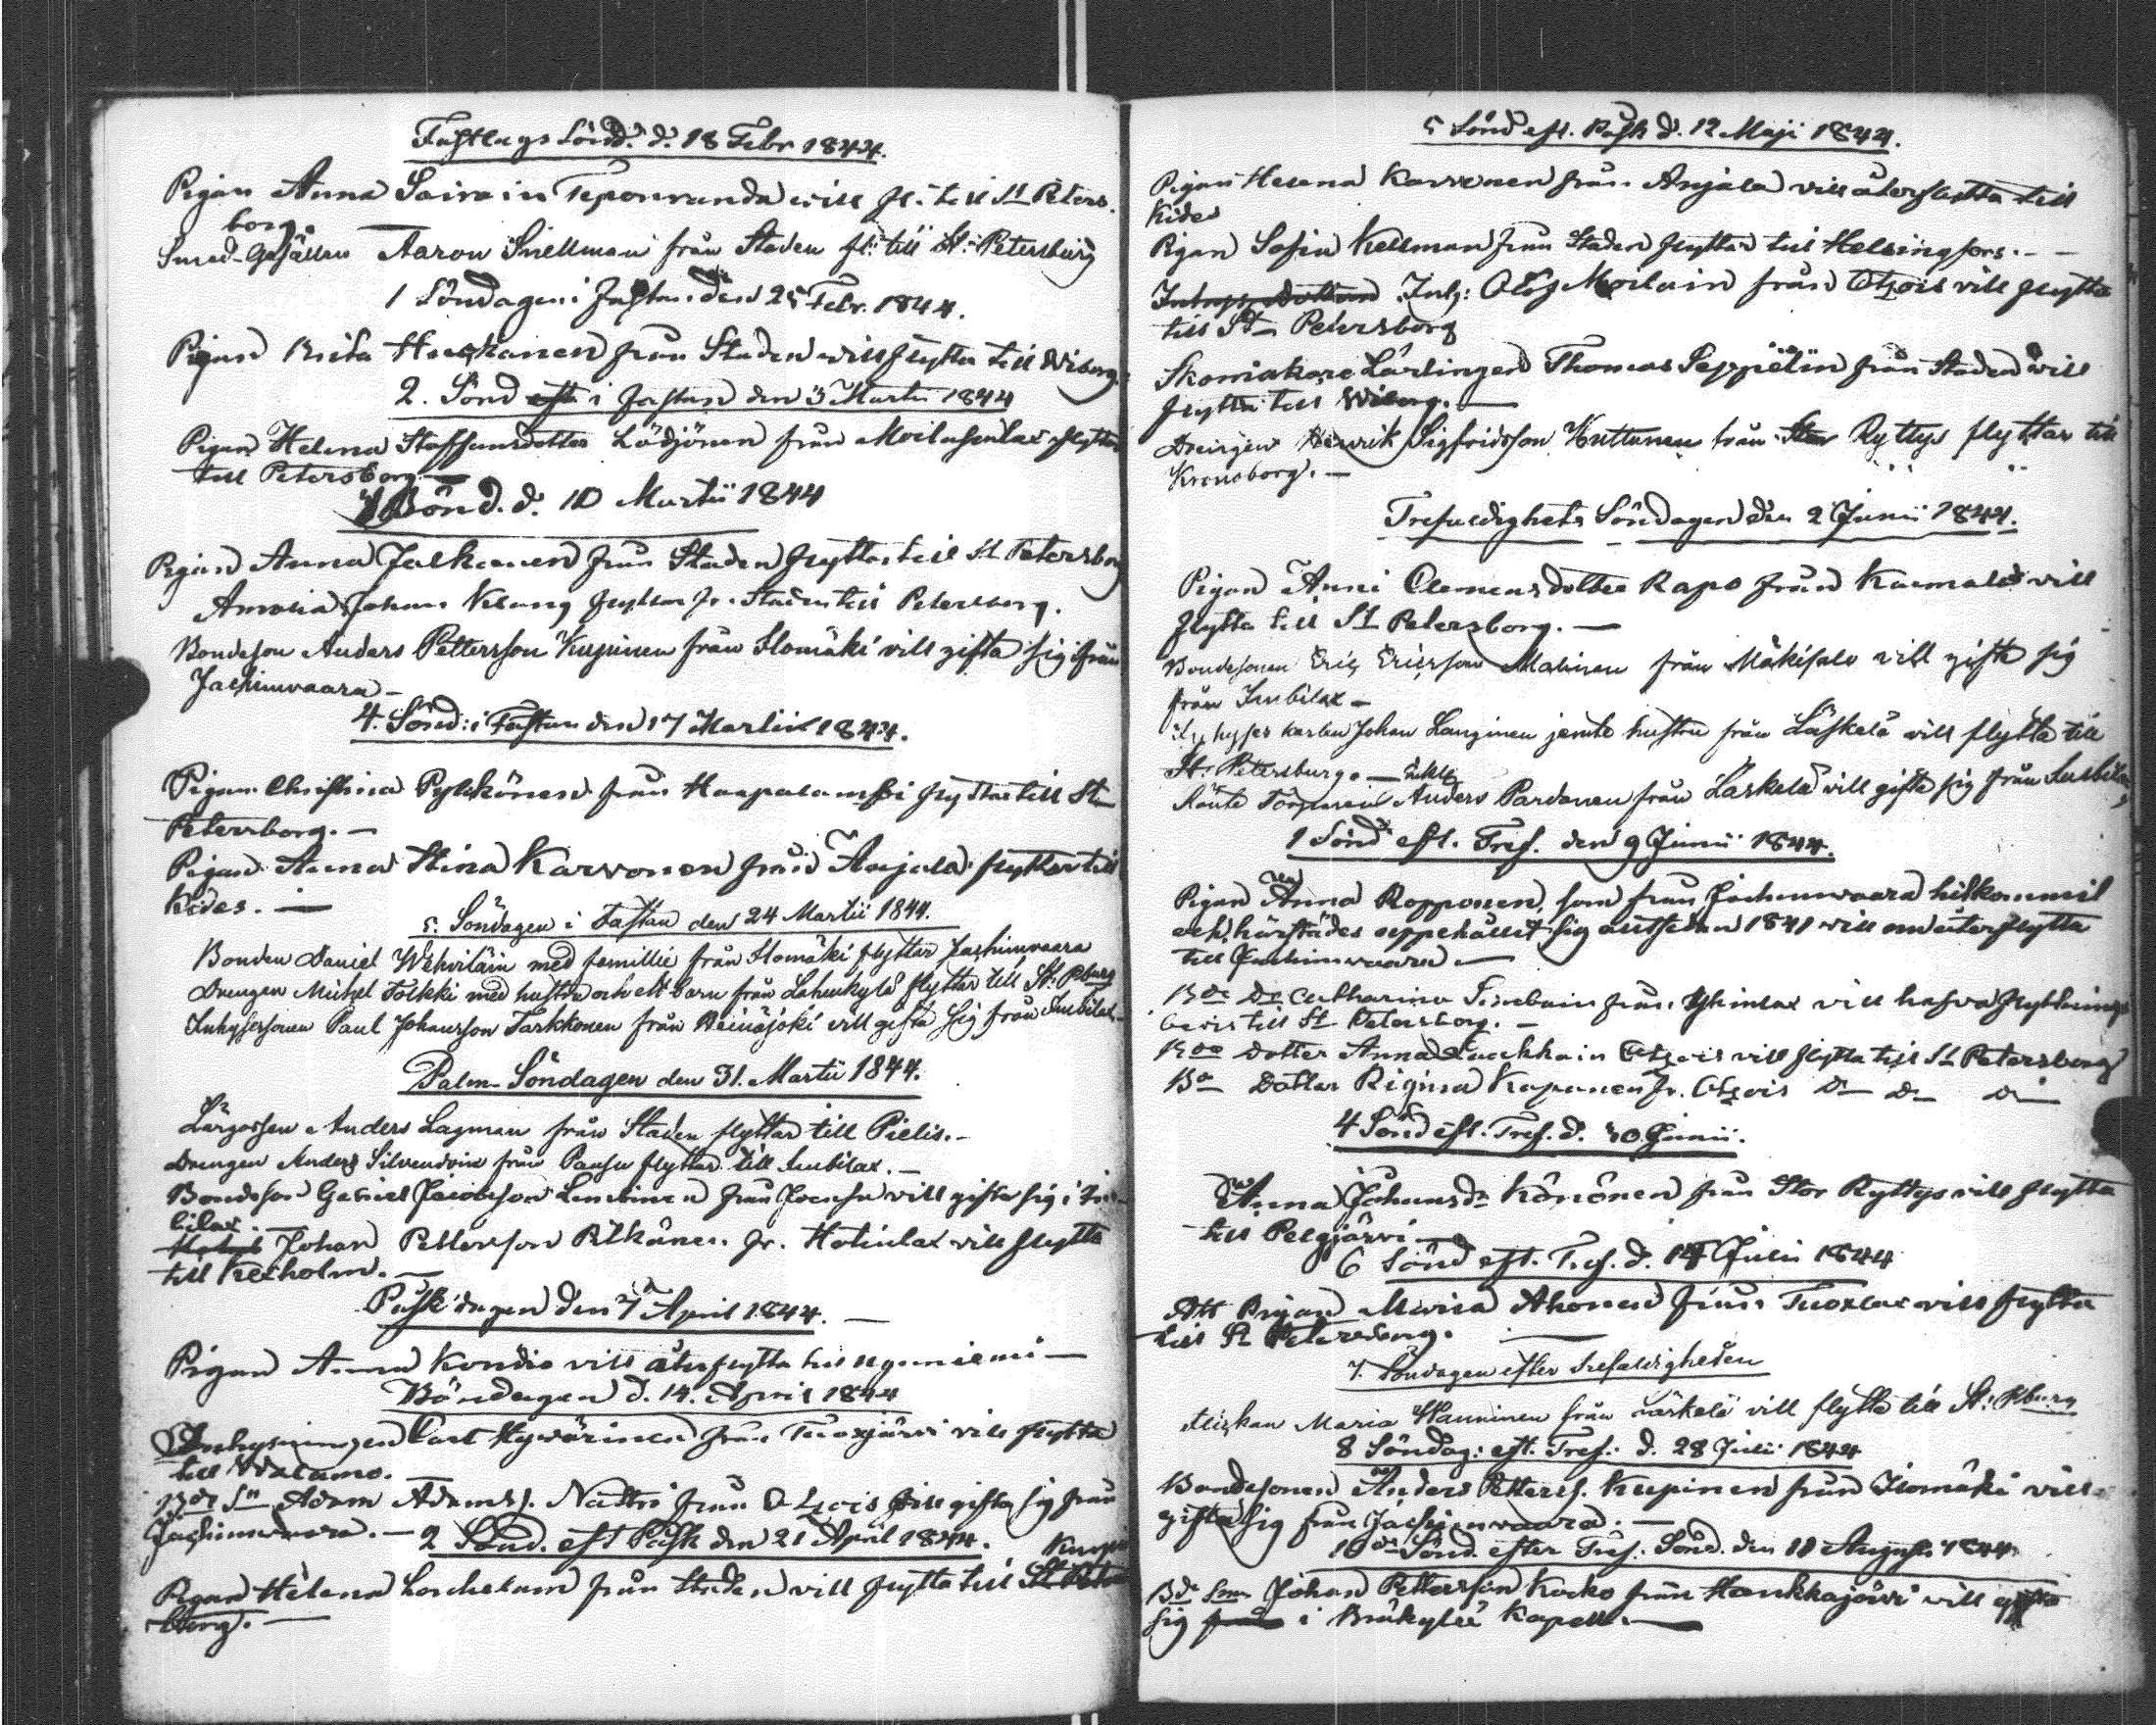 Fastlags Sönd. d. 18 Febr 1844.
Pigan Anna Sairain Teponranda will fl: till St Peters-
borg.
Smed-Gesällen Aaron Snellman från Staden fl: till St: Petersburg
1 Söndagen i Fastan den 25 Febr. 1844.
Pigan Brita från Staden will flytta till Wiborg.
2. Sönd eft i fastan den 3 Martii 1844
Pigan Helena Staffansdotter Lödjönen från flyttar
till Petersborg.
Bönd. d. 10 Martii 1844
Pigan Anna Jalkanen från Staden flyttar till St Petersborg
Johan flyttar fr. Staden till Petersborg.
Bondeson Anders Pettersson Kupinen från Ilomäki vill gifta sig från
Jachimvaara -
4. Sönd: i Fastan den 17 Martii 1844.
Pigan Christina Pylkkönen från Haapalamby flyttar till St
Petersborg. -
Pigan Anna Stina Karvonen från Anjala flyttar till
Kides. -
5. Söndagen i Fastan den 24 Martii 1844.
Bonden Daniel Wehviläin med famillie från Ilomäki flyttar Jachimvaara
Drengen Michel Tolkki med hustru och ett barn från Lahenkylä flyttar till St: Pburg
Inhysessonen Paul Johansson Tarkkonen från Reinäjoki vill gifta sig från Imbilax.
Palm-Söndagen den 31. Martii 1844.
Anders Lagman från Staden flyttar till Pielis.-
Drengen Anders Silvendoin från Pausu flyttar till Imbilax. -
Bondeson Gabriel Jacobsson från Joensu vill gifta sig i Im-
bilax.
Johan Pettersson Pitkänen fr. Hotinlax vill flytta
till Kexholm. -
Påsk dagen den 7 April 1844. -
Pigan Anna Kondio vill återflytta till Uguniemi -
Böndagen d. 14. April 1844
Inhysingen Carl Hyvärinen från Tuoxjärvi vill flytta
till Walamo.
Bde Sn Adam Adamss. Nättri från Otsois vill gifta sig från
Jachimvaara. - 2 Sönd. eft Påsk den 21 April 1844.
Pigan Helena från Staden vill flytta till St Peters
borg. -
5 Sönd eft. Påsk d. 12 Maji 1844.
Pigan Helena Karvonen från Anjala vill återflytta till
Kides
Pigan Sofia Kellman från Staden flyttar till Helsingfors. - -
Inh: Olof Moilain från Otsois vill flytta
till St Petersborg
Skomakare Lärlingen Thomas Seppälin från Staden will
flytta till Wiborg. -
Drengen Henrik Sigfridsson Huttunen från Stor Ryttys flyttar till
Kronoborg. -
Trefaldighets Söndagen den 2 Junii 1844.
Pigan Anni Clemensdotter Rapo från Kuemala vill
flytta till St Petersborg. -
Bondesonen Eric Ericsson Malinen från Mäkisalo vill gifta sig
från Imbilax -
Inhyses karlen Johan Langinen jemte hustru från Läskelä vill flytta till
St: Petersburg. -
Anders Pardanen från Läskelä vill gifta sig från Imbilax
1 Sönd eft. Tref. den 9 Junii 1844.
Pigan Anna Ropponen, som från Jachimvaara hitkommit
och härstädes uppehållit sig alltsedan 1841 will nu återflytta
till Jachimvaara -
Bde Dr Catharina från Yhinlax vill hafva flyttnings
bevis till St Petersborg. -
Bde dotter Anna Otsois vill flytta till St Petersborg
Bde Dotter Regina Kapanen fr. Otsois Do Do Do
4 Sönd eft. Tref. d. 30 Junii.
Anna Johansdr Könönen från Stor Ryttys vill flytta
till Pelgjärvi -
6 Sönd eft. Tref. d. 14 Julii 1844
Att Pigan Maria Ahonen från Tuoxlax vill flytta
till St Petersborg.
7. Söndagen efter Trefaldigheten
Flickan Maria Hanninen från Läskelä vill flytta till St: Pburg
8 Söndag: eft. Tref: d. 28 Julii 1844
Bondesonen Anders Petterss. Kupinen från Ilomäki vill
gifta sig från Jachimvaara. -
10de Sönd. efter Tref. Sönd. den 11 Augusti 1844
Bde Son Johan Pettersson Kocko från Hankkajärvi vill gifta
sig från i Bräkylä Kapell. -